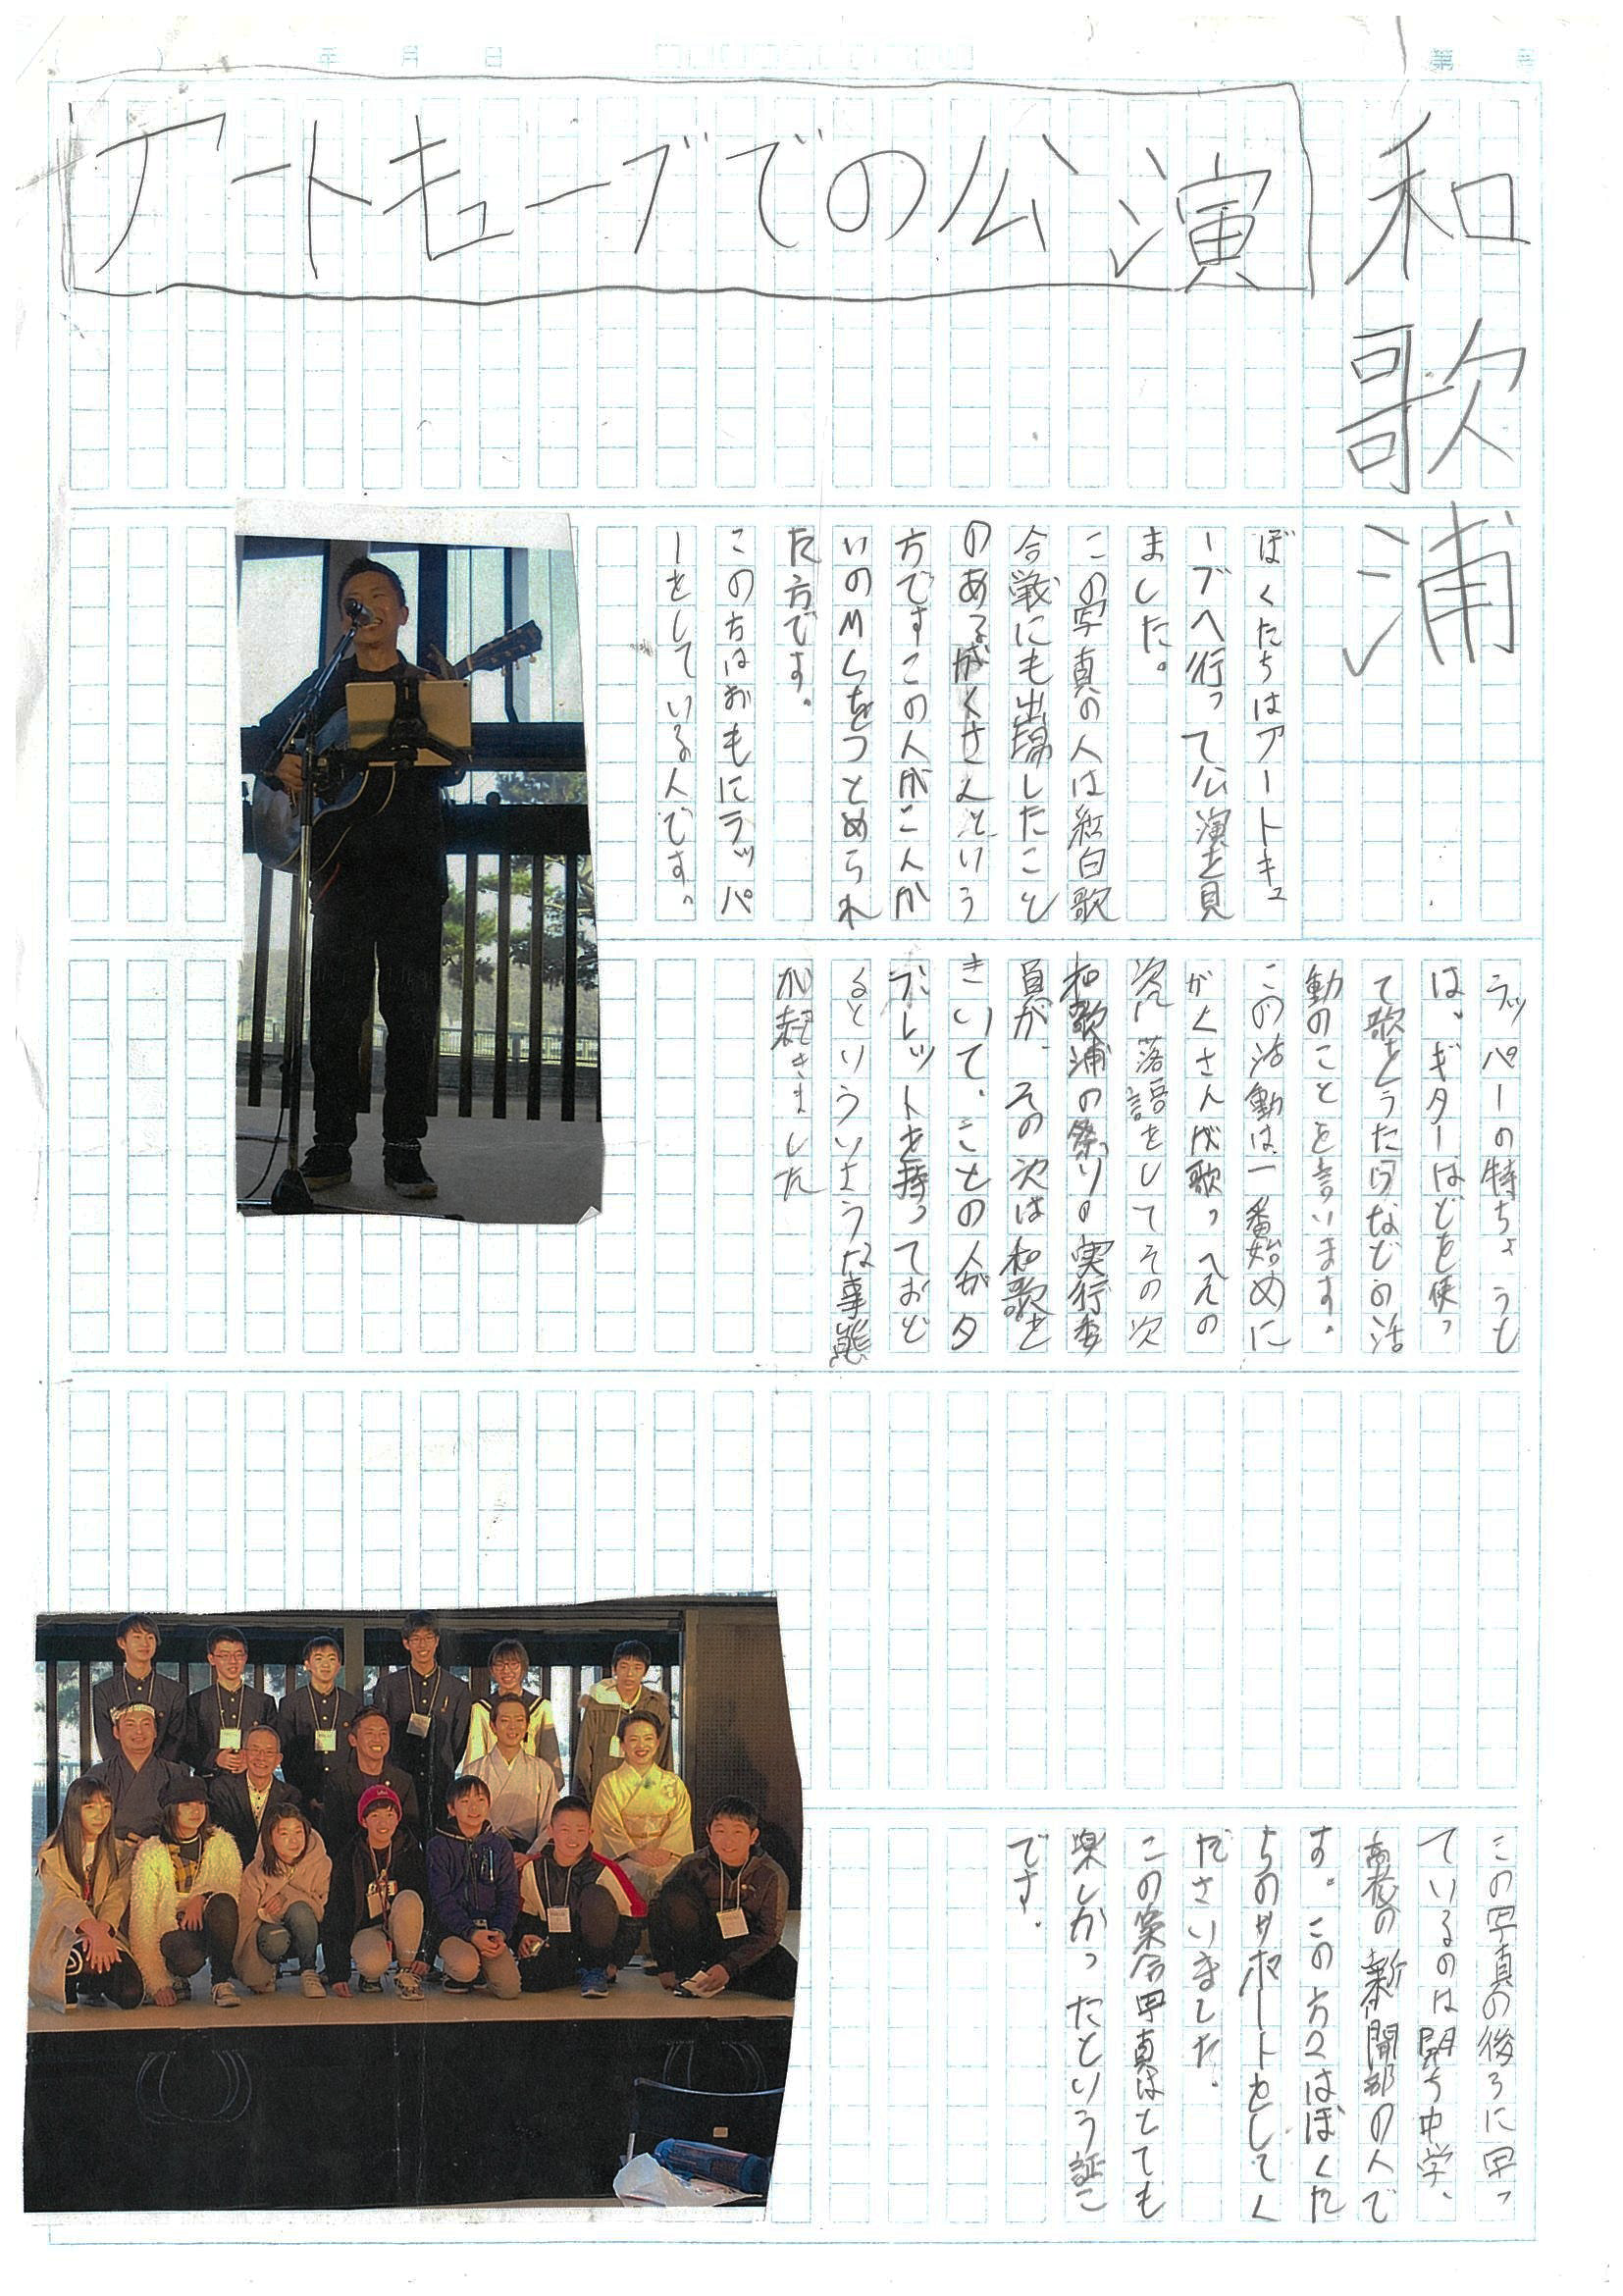 和歌浦
アートキューブでの公演
ぼくたちはアートキュ
ーブへ行って公演を見
ました。
この写真の人は紅白歌
合戦にも出場したこと
のあるがくさんという
方ですこの人がこんか
いのMCをつとめられ
た方です。
この方はおもにラッパ
ーをしている人です。
ラッパーの特ちょうと
は、ギターなどを使っ
て歌をうたうなどの活
動のことを言います。
この活動は一番始めに
がくさんが歌っへんの
次に落語をしてその次
和歌浦の祭りの実行委
員が、その次は和歌を
きいて、ことの人がタ
ブレットを持っておど
るというような事態
が起きました
この写真の後ろに写っ
ているのは開ち中学、
高校の新聞部の人で
す。この方々はぼくた
ちのサポートをしてく
ださいました。
この集合写真はとても
楽しかったという証こ
です。
年 月 日
第 号